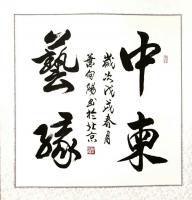 中東
藝緣
歲次戊戌春月
葉向陽書於北京